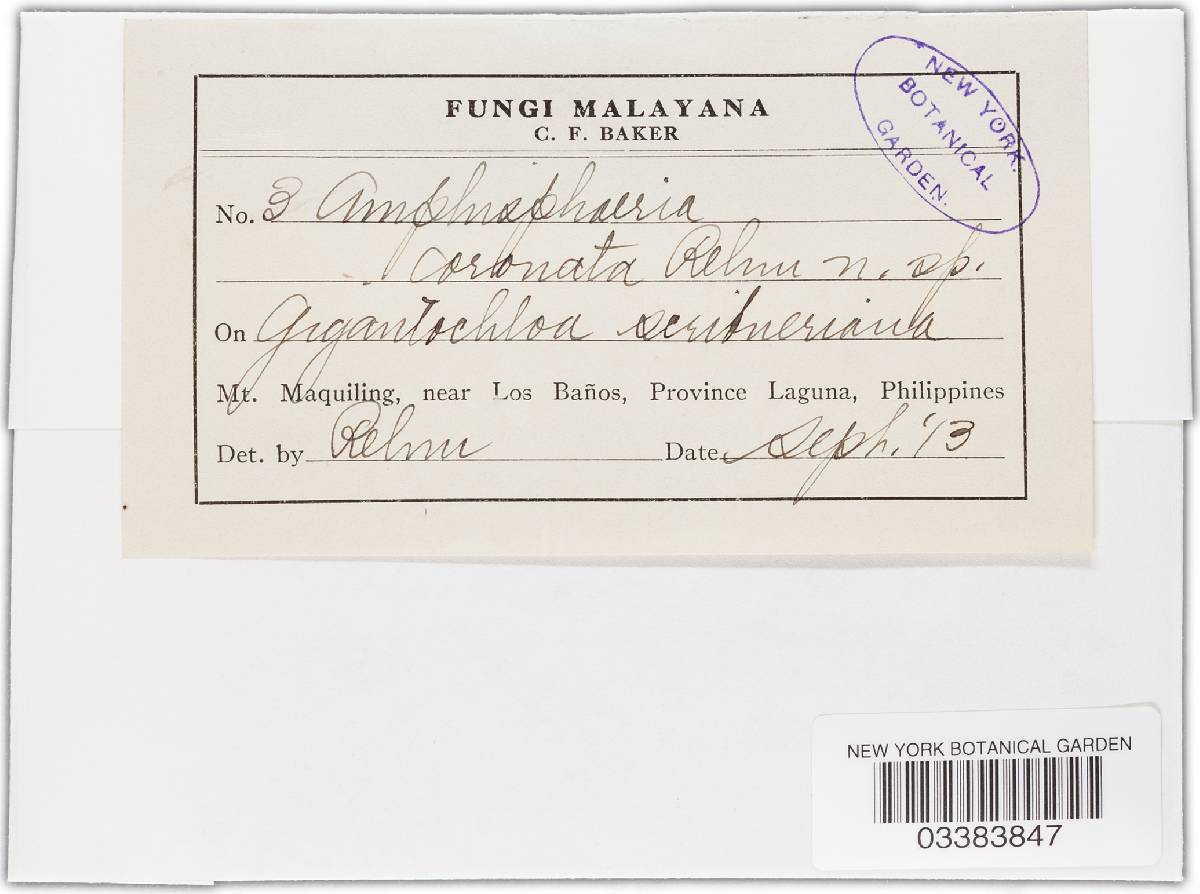 FUNGI MALAYANA
C. F. BAKER
NEW YORK
BOTANICAL
GARDEN.
No. 3 Amphisphaeria
coronata Rehm n. sp.
On Gigantochloa scribneriana
Mt. Maquiling, near Los Baños, Province Laguna, Philippines
Det. by Rehm Date Sept. '13
NEW YORK BOTANICAL GARDEN
03383847